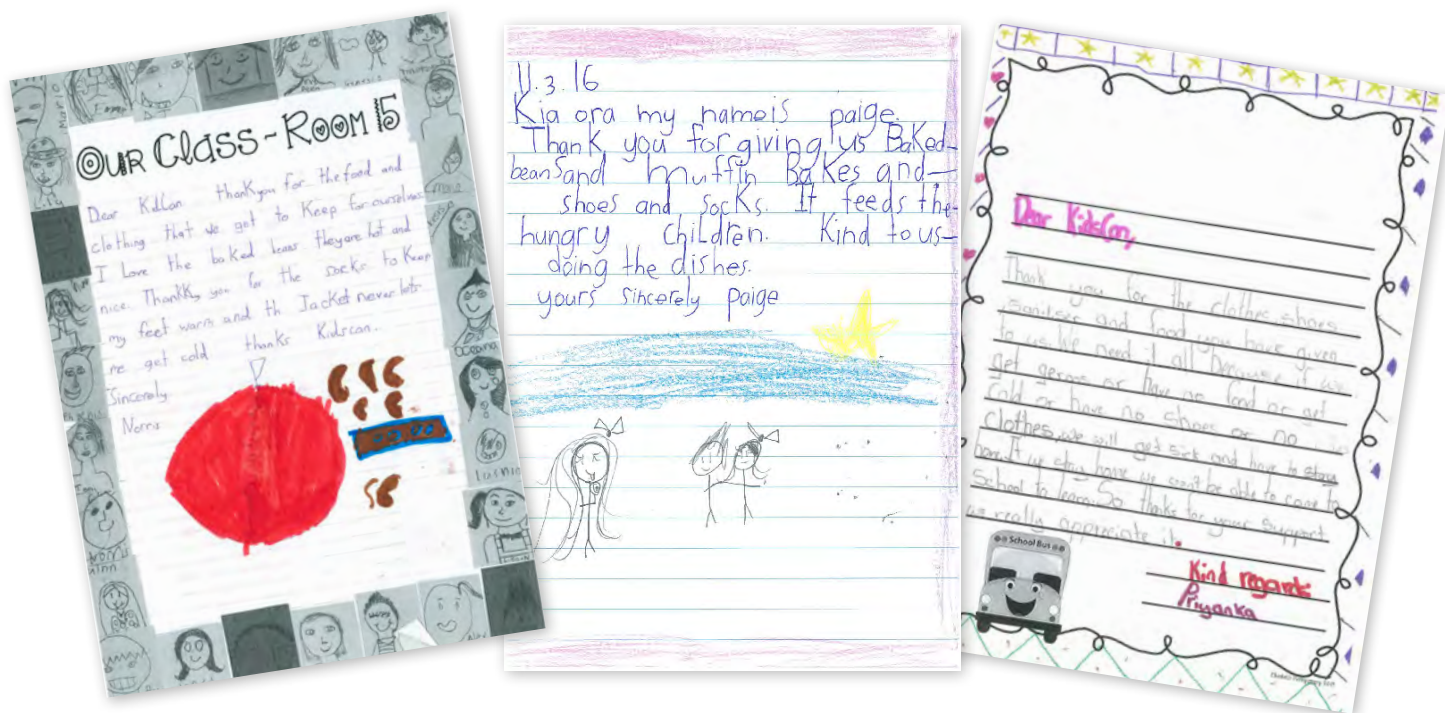 OUR Class - ROOM 15
Dear KidsCan thankyou for the food and
clothing that we got to Keep for ourselves
I Love the baked beans they are hot and
nice. Thankk you for the socks to Keep
my feet warm and th Jacket never lets
me get cold thanks Kidscan.
Sincerely
11.3.16
Kia ora my name is paige.
Thank you for giving us Baked-
beans and muffin Bakes and-
shoes and socks. It feeds the-
hungry children. Kind to us-
doing the dishes.
yours sincerely paige
Dear KidsCan,
Thank you for the clothes, shoes
sanitser and food you have given
to us. We need it all because if we
get germs or have no food or get
cold or have no shoes or no
clothes, we will get sick and have to stay
home. If we stay home we won't be able to come to
School to learn. So thanks for your support
we really appreciate it.
Kind regards
Priyanka
School Bus